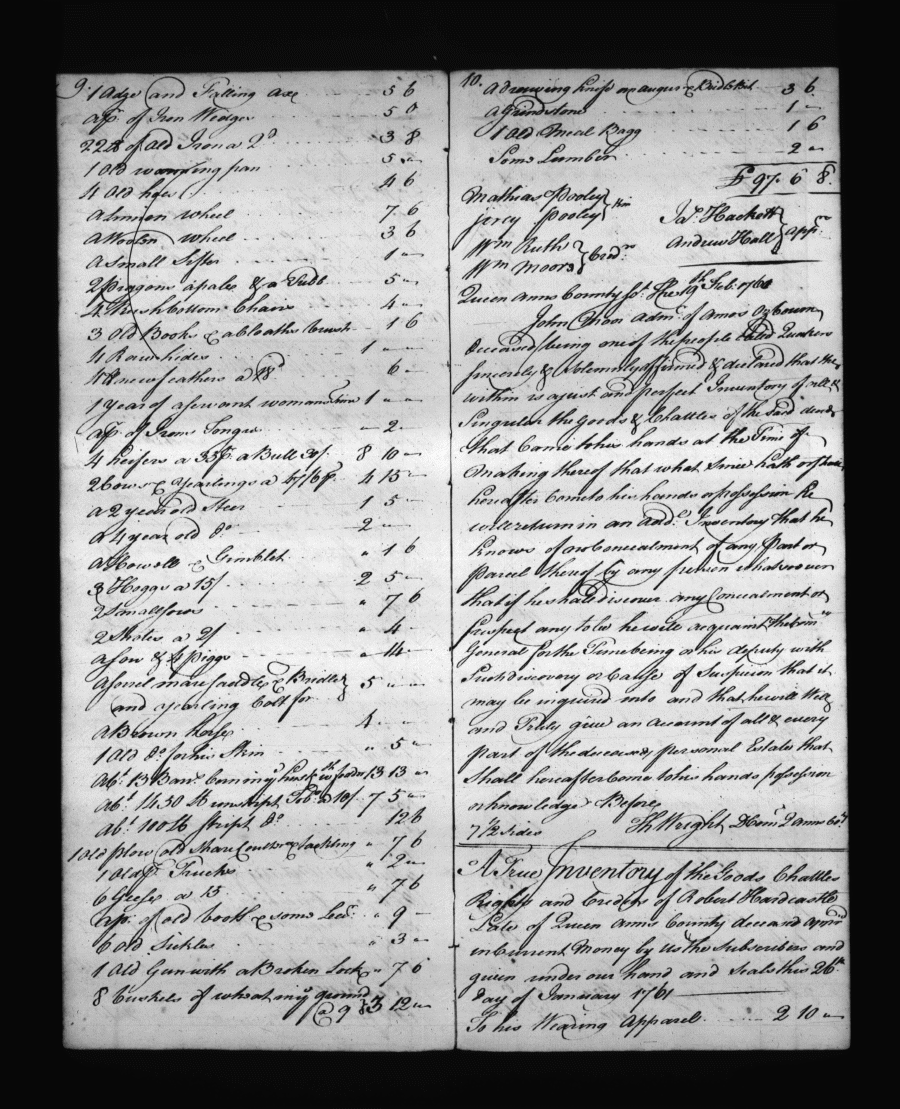 9. 1 Adze and Falling axe 5 6
a p.r of Iron Wedges 5 0
22 lb of Old Iron a 2d 3 8
1 Old warming pan 5 "
4 Old hoes 4 6
a Linnen wheel 7 6
a Woolen wheel 3 6
a Small Sifter 1 "
2 Piggons a pale & a Tubb 5 "
4 Rush bottom Chairs 4 "
3 Old Books & a bloaths brush 1 6
4 Raw hides 1 " "
new feathers a 18d 6 "
1 year of a servant womans time 1 " "
a p.r of Irons Tongs " 2 "
4 heifers a 35/ a Bull 30/ 8 10 "
2 Cows & Yearlings a 47/6 p.r 4 15 "
a 2 year old Steer 1 5 "
a 4 year old Do 2 " "
a Howell & Gimblet " 1 6
3 Hoggs a 15/ 2 5 "
2 Small sows " 7 6
2 Shotes a 2/ " 4 "
a Sow & 4 Piggs " 14 "
a Sorrel mare saddle & Bridle
and yearling Colt for 5 " "
a Brown horse 4 " "
1 Old Do for his Skin " 5 "
Abt 13 Barr.s Corn in ye husk & fodder 13 13 "
Abt 1450 lb unstript Tobo a 10/ 7 5 "
Abt 100 lb Stript Do 12 6
1 Old plow old Share Coulter & tackling " 7 6
1 Old p.r Trucks " 2 "
6 Geese a 15 " 7 6
a p.r of old boots & some " 9 "
6 Old Sickles " 3 "
1 Old Gun with a Broken Lock " 7 6
8 bushels of wheat in ye ground
@ 9 £3 12 "
10. a Drawing knife an auger & Bridle Bit 3 6
a Grindstone 1 "
1 Old Meal Bagg 1 6
Some Lumber 2 "
£ 97. 6 8.
Mathias Pooley
Jercy Pooley } Kin
Wm Ruth
Wm Moors } Cred.rs
Jas Hackett
Andrew Hall } App.rs
Queen Anns County Sct. The 19th Feb. 1760
John Moor Adm.r of Amos Osbourn
Deceased (being one of the people called Quakers
sincerely & Solemnly affirmed & declared that the
within is a just and perfect Inventory of all &
Singular the Goods & Chattles of the said decd
that Came to his hands at the Time of
making thereof that what Since hath or shall
hereafter Come to his hands or possession he
will return in an addl Inventory that he
knows of no Concealment of any Part or
Parcel thereof by any person whatsoever
that if he shall discover any Concealment or
suspect any to be he will acquaint the Com.ry
General for the Time being or his deputy with
Such discovery or Cause of Suspicion that it
may be inquired into and that he will Well
and Truly give an account of all & every
part of the deceaseds personal Estate that
shall hereafter Come to his hands possession
or knowledge Before
7 1/2 Sides Th Wright D Com.y Q Anns Coty
A True Inventory of the Goods Chattles
Rights and Credits of Robert Hardcastle
Late of Queen Anns County deceasd appris'd
in Current Money by us the Subscribers and
given under our hand and Seals this 26th
day of January 1761
To his Wearing Apparel 2 10 "